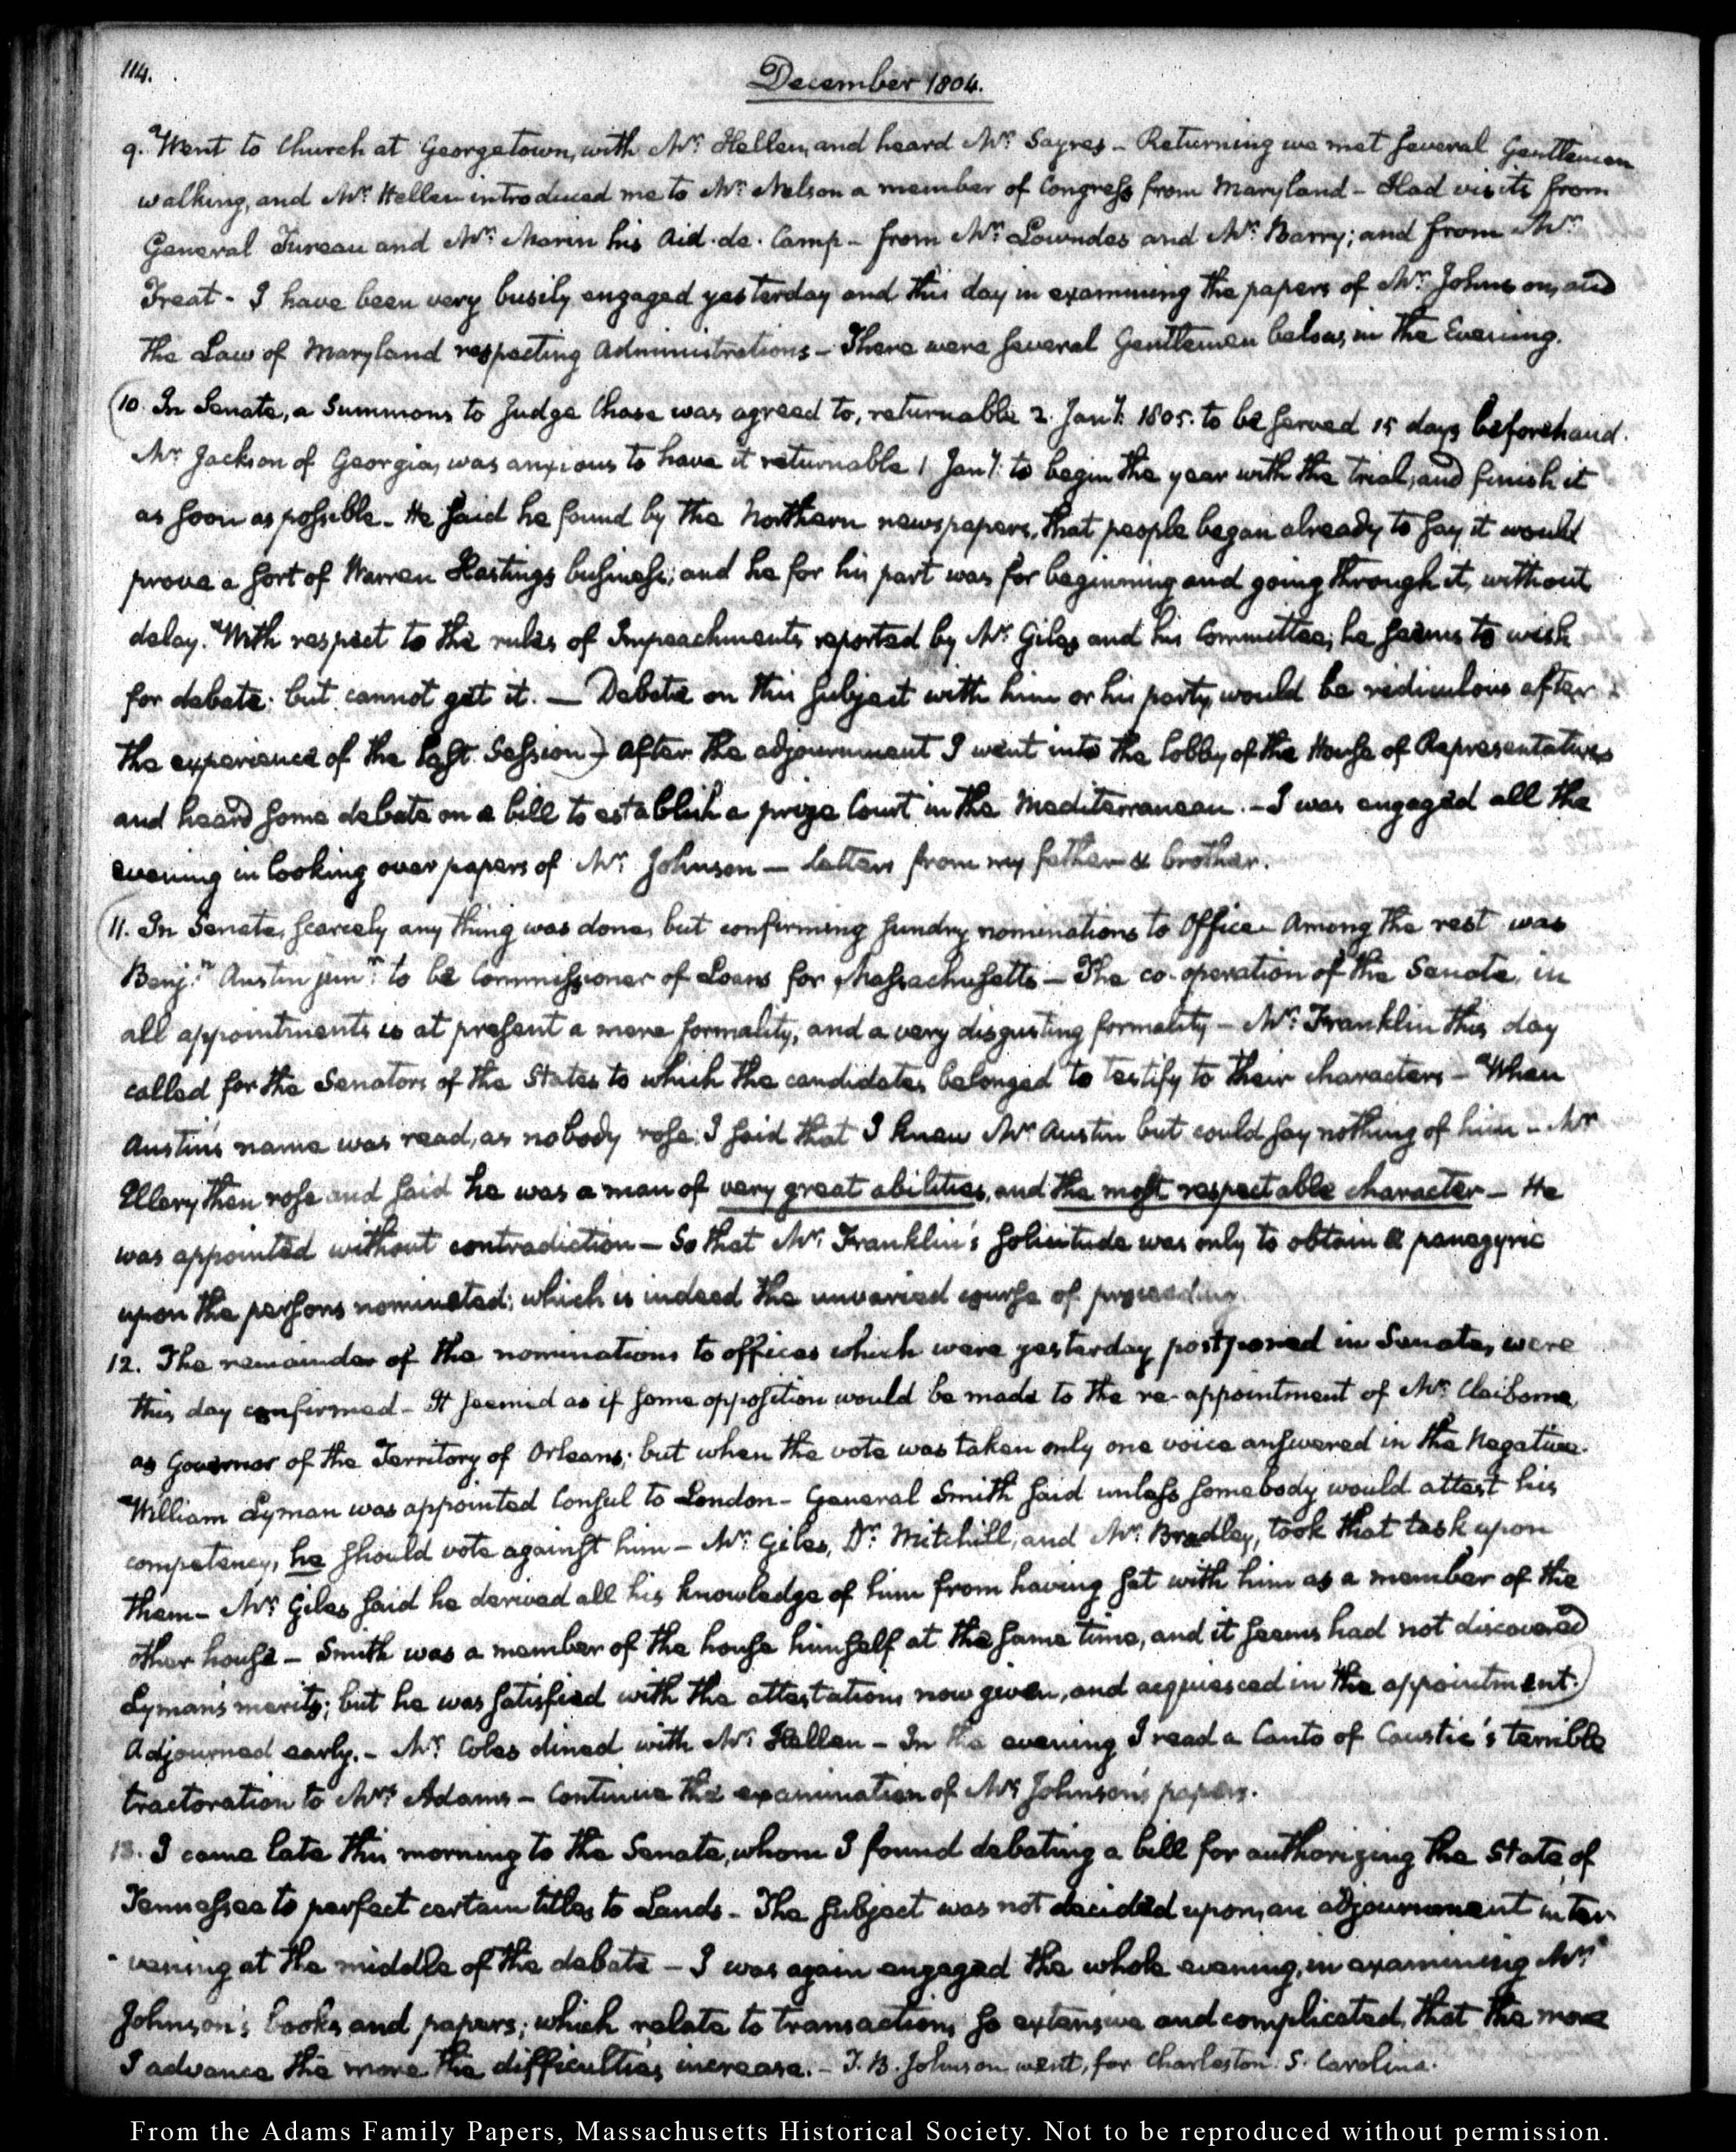 114.
December 1804.
9. Went to Church at Georgetown, with Mr. Hellen, and heard Mr. Sayres - Returning we met several Gentlemen
walking, and Mr. Hellen introduced me to Mr. Nelson a member of Congress from Maryland - Had visits from
General Tureau and Mr. Marin his Aid-de-Camp - from Mr. Lowndes and Mr. Barry; and from Mr.
Treat - I have been very busily engaged yesterday and this day in examining the papers of Mr. Johnson, and
the Law of Maryland respecting Administrations - There were several Gentlemen below, in the Evening.
10. In Senate, a Summons to Judge Chase was agreed to, returnable 2. Jany. 1805. to be served 15 days beforehand.
Mr. Jackson of Georgia, was anxious to have it returnable 1 Jany. to begin the year with the trial, and finish it
as soon as possible - He said he found by the Northern newspapers, that people began already to say it would
prove a sort of Warren Hastings business; and he for his part was for beginning and going through it, without
delay. With respect to the rules of Impeachments reported by Mr. Giles and his Committee, he seems to wish
for debate; but cannot get it. — Debate on this subject with him or his party, would be ridiculous after
the experience of the last Session) - After the adjournment I went into the lobby of the House of Representatives
and heard some debate on a bill to establish a prize Court in the Mediterranean. - I was engaged all the
evening in looking over papers of Mr. Johnson — Letters from my father & brother.
11. In Senate, scarcely any thing was done, but confirming sundry nominations to Office - Among the rest was
Benj.n Austin junr. to be Commissioner of Loans for Massachusetts — The co-operation of the Senate, in
all appointments is at present a mere formality, and a very disgusting formality - Mr. Franklin this day
called for the Senators of the States to which the candidates belonged to testify to their characters - When
Austin's name was read, as nobody rose, I said that I knew Mr. Austin but could say nothing of him - Mr
Ellery then rose and said he was a man of very great abilities, and the most respectable character - He
was appointed without contradiction — So that Mr. Franklin's solicitude was only to obtain a panegyric
upon the persons nominated; which is indeed the unvaried course of proceeding.
12. The remainder of the nominations to offices which were yesterday postponed in Senate, were
this day confirmed - It seemed as if some opposition would be made to the re-appointment of Mr. Claiborne,
as Governor of the Territory of Orleans; but when the vote was taken only one voice answered in the Negative.
William Lyman was appointed Consul to London - General Smith said unless somebody would attest his
competency, he should vote against him - Mr. Giles, Dr. Mitchill, and Mr. Bradley, took that task upon
them - Mr. Giles said he derived all his knowledge of him from having sat with him as a member of the
other house - Smith was a member of the house himself at the same time, and it seems had not discovered
Lyman's merits; but he was satisfied with the attestations now given, and acquiesced in the appointment.)
Adjourned early. - Mr. Coles dined with Mr. Hellen - In the evening I read a Canto of Caustic's terrible
tractoration to Mrs. Adams - Continue the examination of Mr. Johnson's papers.
13. I came late this morning to the Senate, whom I found debating a bill for authorizing the State of
Tennessee to perfect certain titles to Lands - The subject was not decided upon, an adjournment inter-
-vening at the middle of the debate - I was again engaged the whole evening, in examining Mr.
Johnson's books and papers; which relate to transactions so extensive and complicated, that the more
I advance the more the difficulties increase. - T. B. Johnson went, for Charleston. S. Carolina.
From the Adams Family Papers, Massachusetts Historical Society. Not to be reproduced without permission.